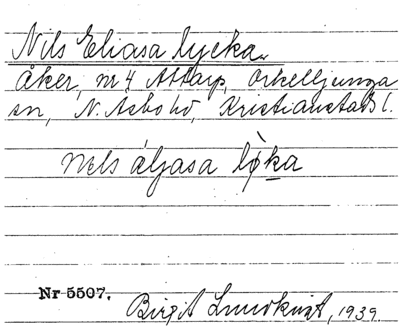 Nils Eliasa lycka
Åker, nr 4 Attarp, Örkelljunga
sn, N. Åsbo hd, Kristianstads l.
nels áljasa lø̀ka
Nr 5507.
Birgit Lundkvist, 1939.